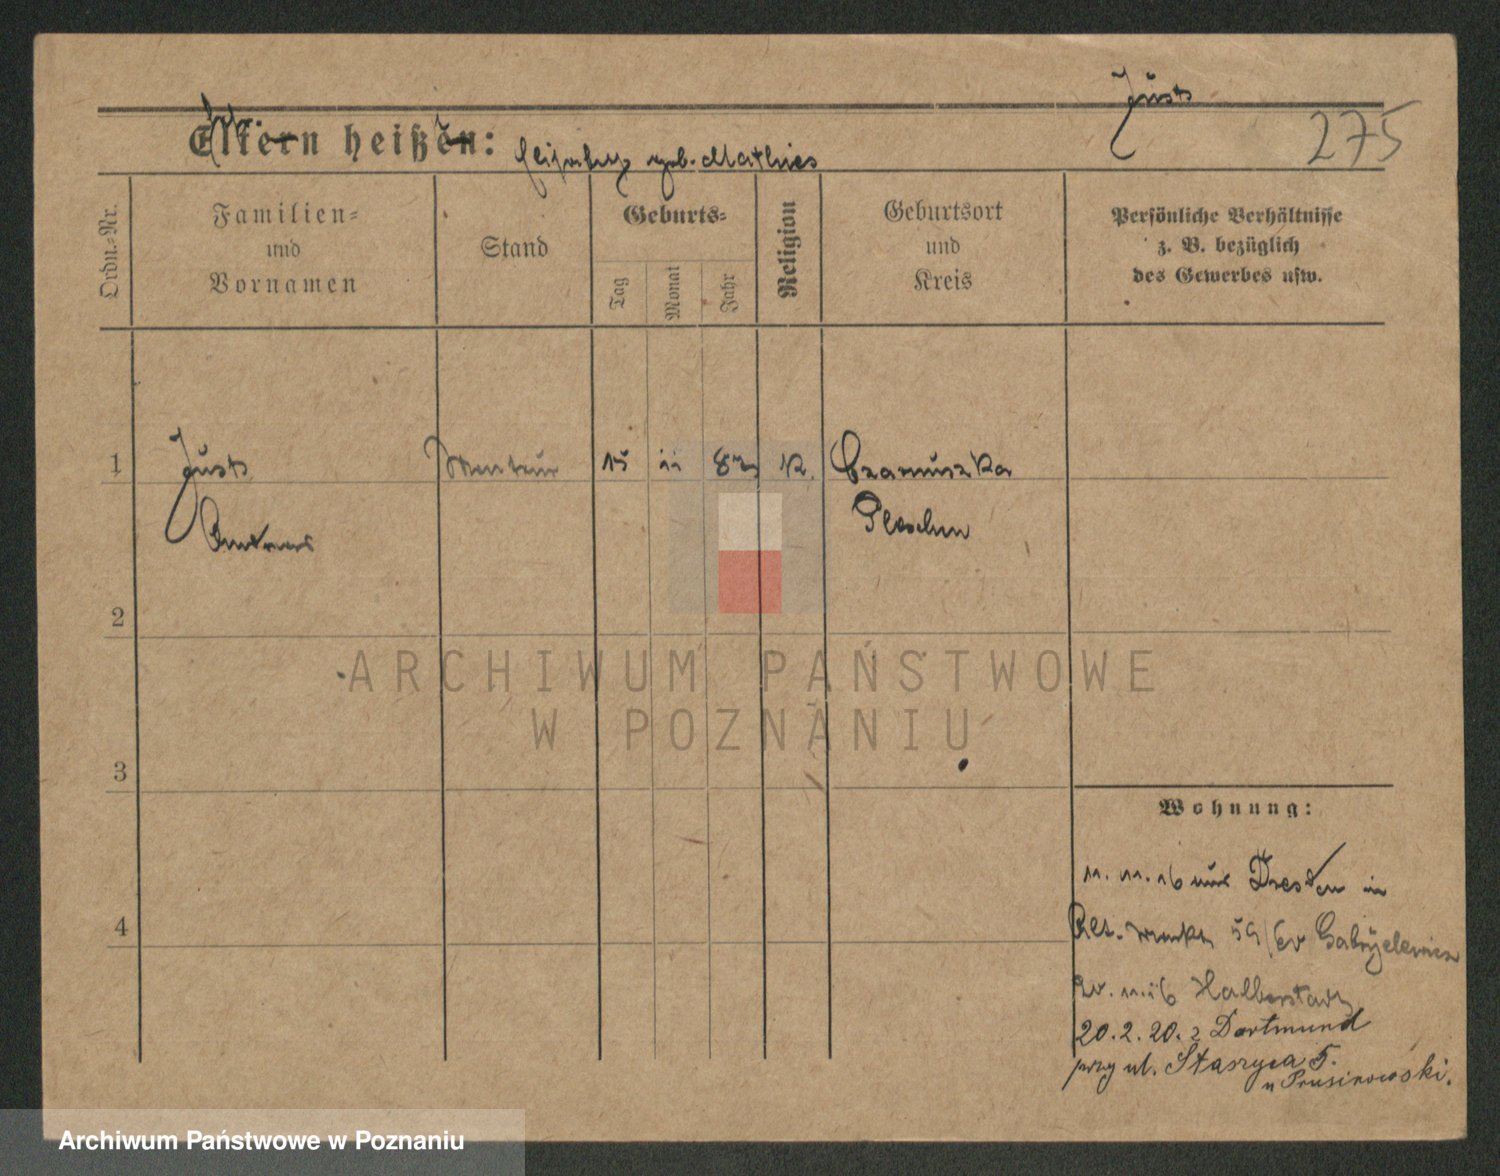 Justs
275
Eltern heißen:
geb. Mathies
Ordn.-Nr.
Familien-
und
Vornamen
Stand
Geburts-
Tag
Monat
Jahr
Religion
Geburtsort
und
Kreis
Persönliche Verhältnisse
z. B. bezüglich
des Gewerbes usw.
1
Justs
Monteur
15
11
K.
Czarnuszka
Pleschen
2
3
4
Wohnung:
11. 11. 16 aus Dresden in
Alt. markt 59/60
11. 16 Halberstadt
20. 2. 20. z Dortmund
przy ul. Staszyca 5.
u Prusinowski.
ARCHIWUM PAŃSTWOWE
W POZNANIU
Archiwum Państwowe w Poznaniu